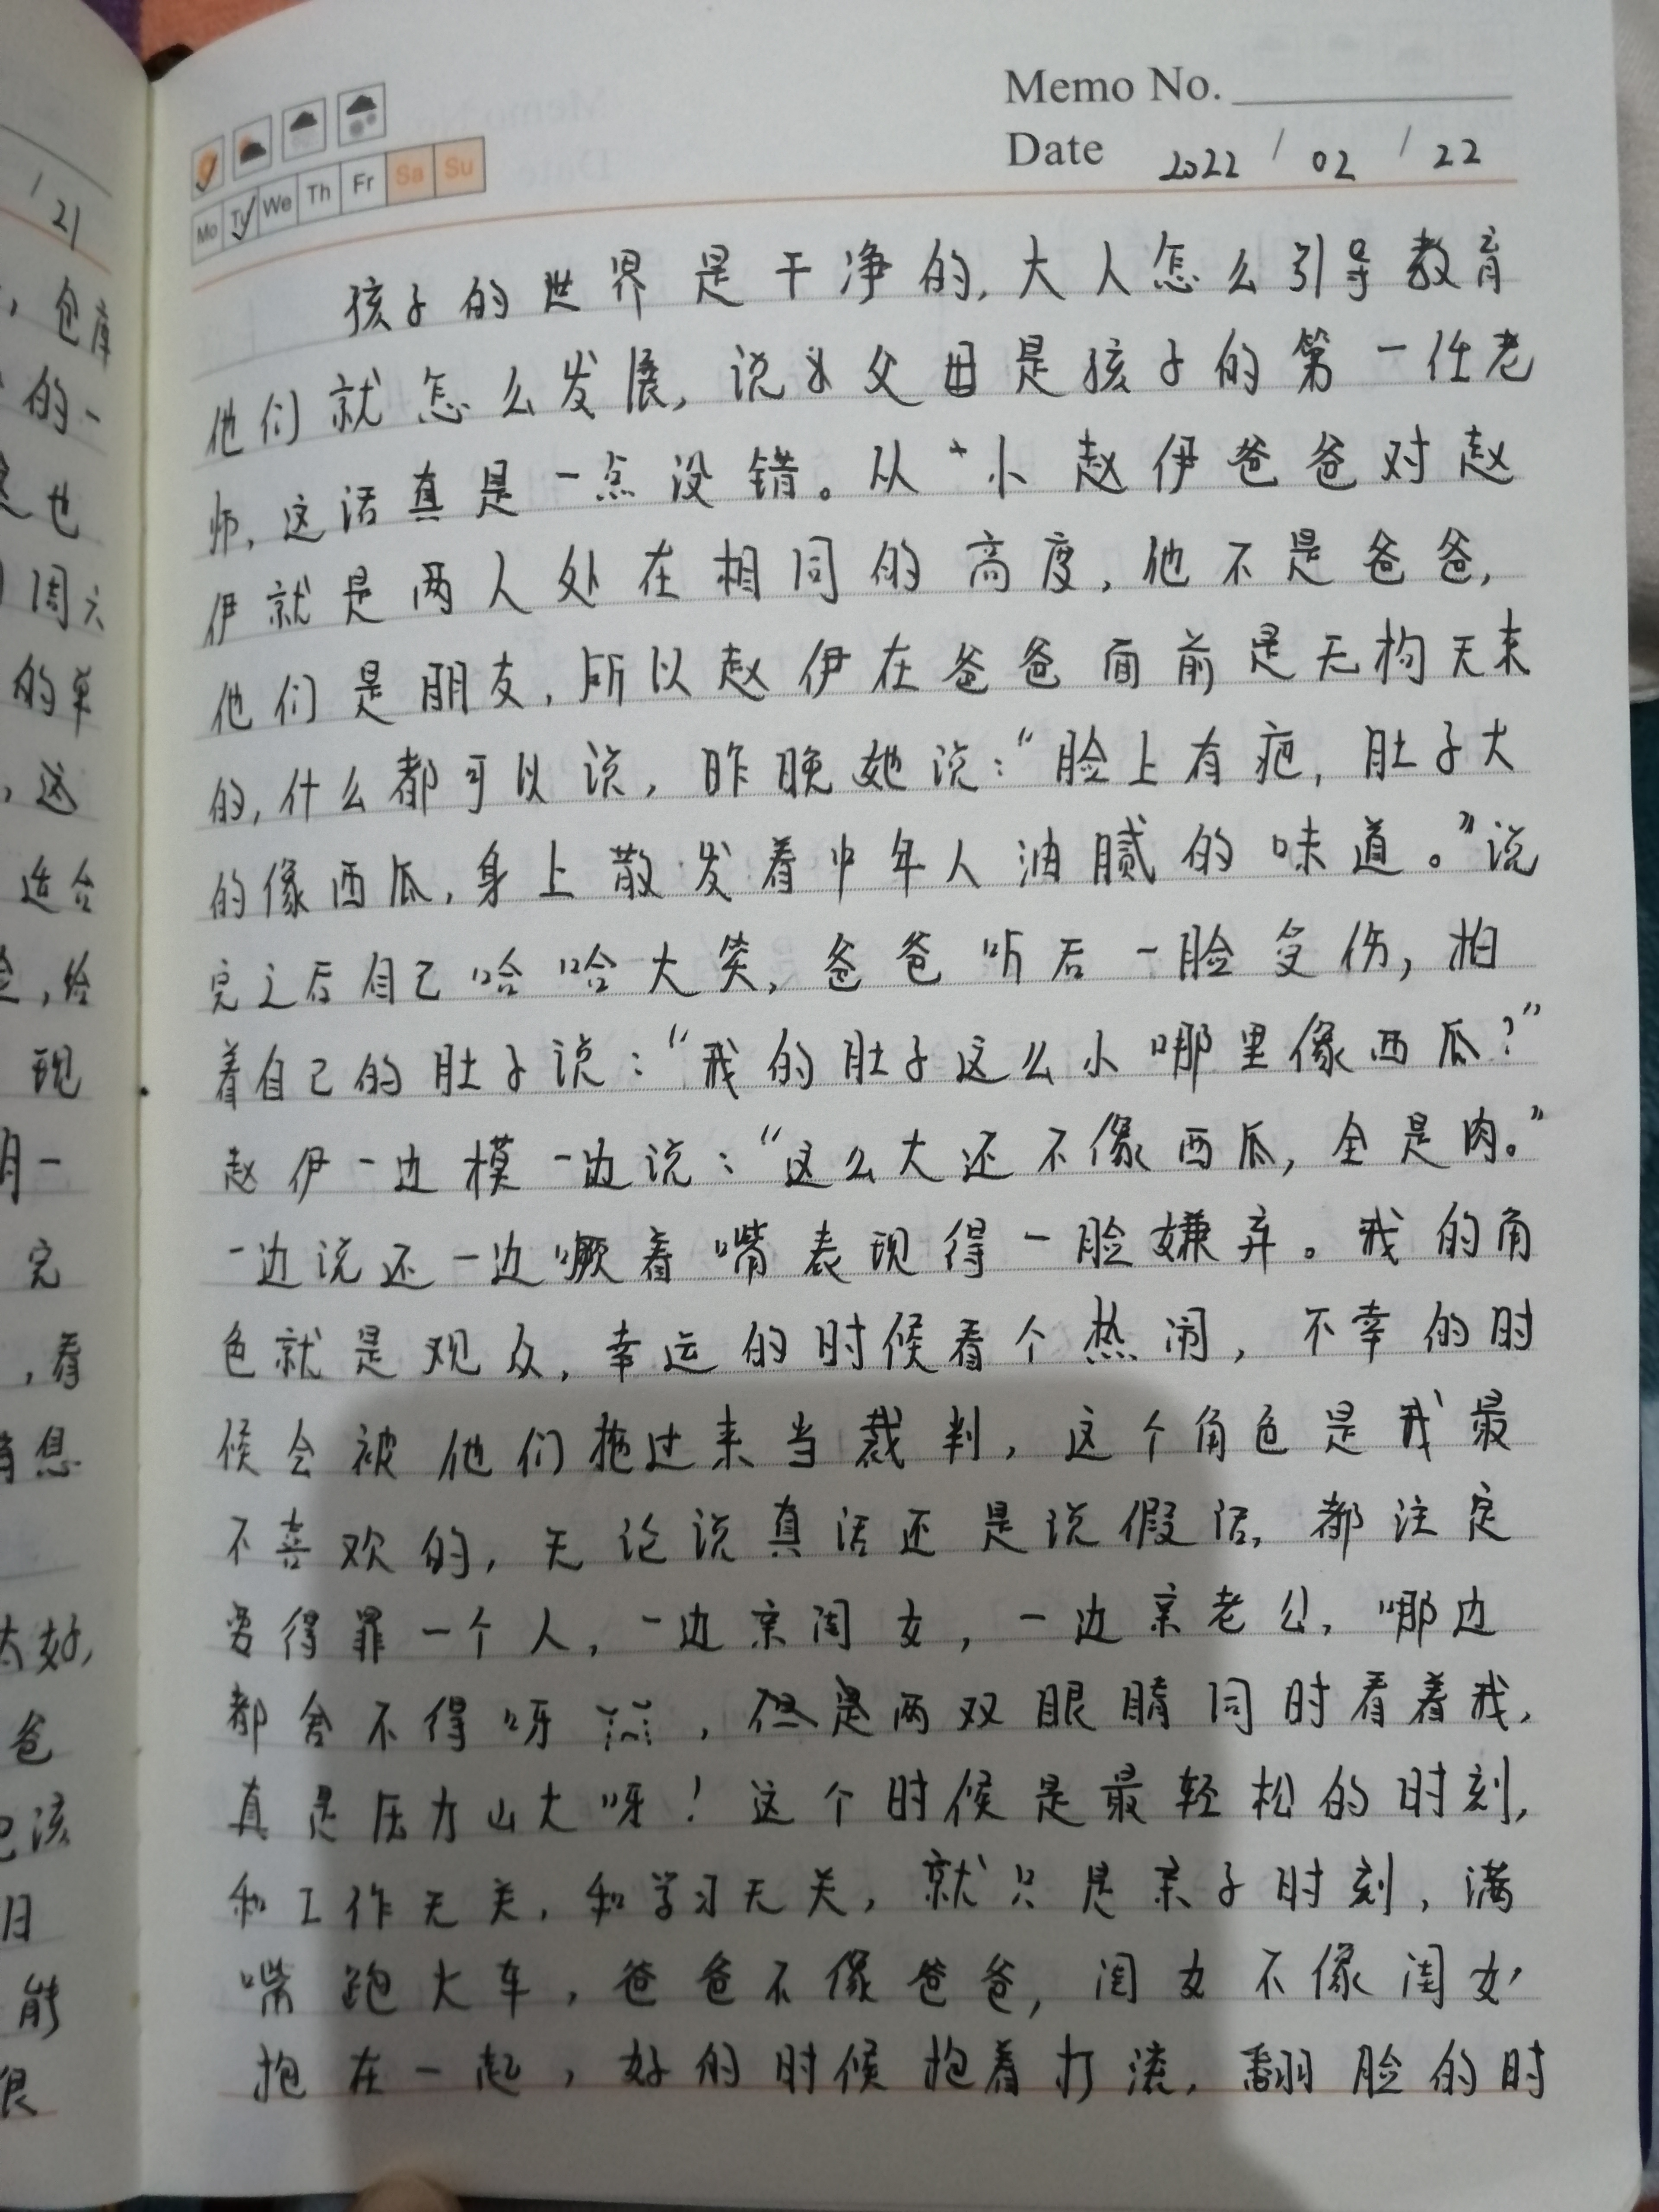 Memo No.
Date 2022 / 02 / 22
Mo Tu We Th Fr Sa Su
孩子的世界是干净的,大人怎么引导教育
他们就怎么发展,说父母是孩子的第一任老
师,这话真是一点没错。从小赵伊爸爸对赵
伊就是两人处在相同的高度,他不是爸爸,
他们是朋友,所以赵伊在爸爸面前是无构无束
的,什么都可以说,昨晚她说:“脸上有疤,肚子大
的像西瓜,身上散发着中年人油腻的味道。”说
完之后自己哈哈大笑,爸爸听后一脸受伤,拍
着自己的肚子说:“我的肚子这么小哪里像西瓜?”
赵伊一边模一边说:“这么大还不像西瓜,全是肉。”
一边说还一边噘着嘴表现得一脸嫌弃。我的角
色就是观众,幸运的时候看个热闹,不幸的时
候会被他们拖过来当裁判,这个角色是我最
不喜欢的,无论说真话还是说假话,都注定
要得罪一个人,一边亲闺女,一边亲老公,哪边
都舍不得呀,但是两双眼睛同时看着我,
真是压力山大呀!这个时候是最轻松的时刻,
和工作无关,和学习无关,就只是亲子时刻,满
嘴跑火车,爸爸不像爸爸,闺女不像闺女,
抱在一起,好的时候抱着打滚,翻脸的时